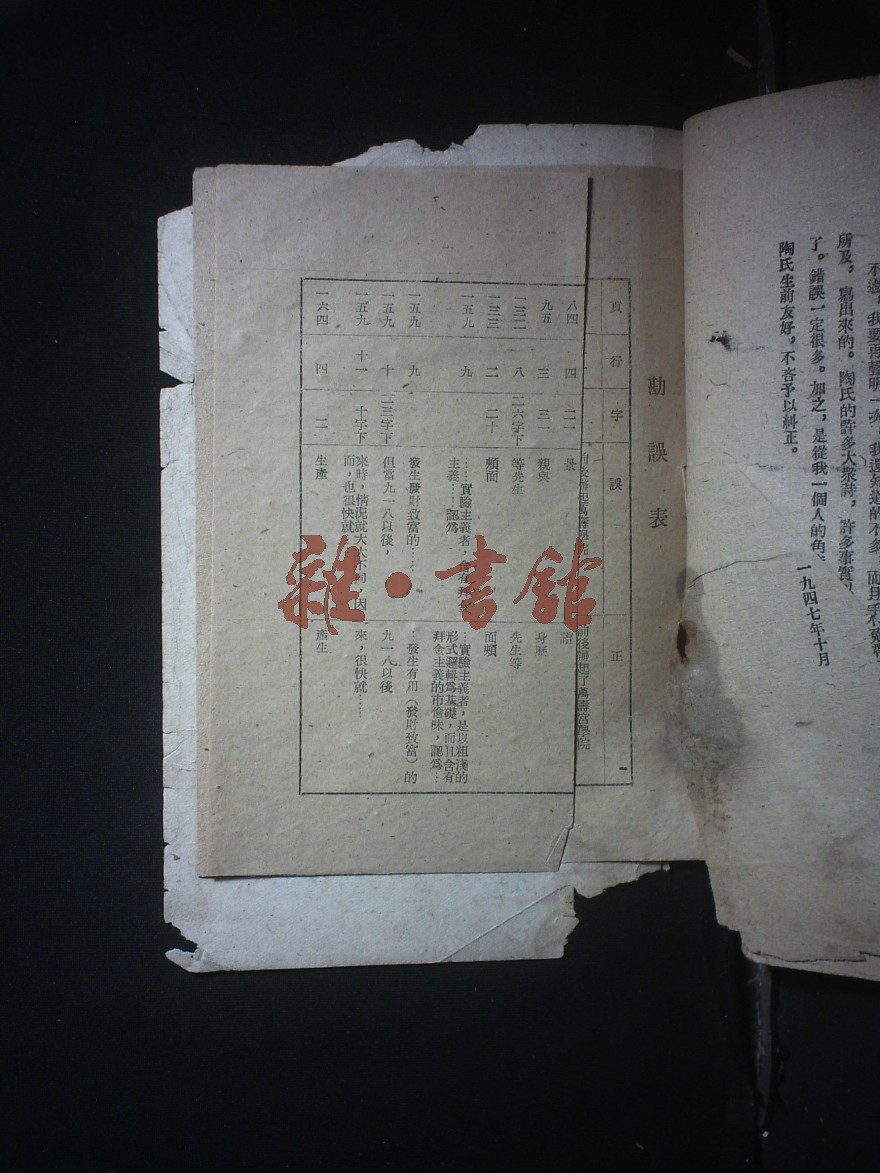 所及，寫出來的。陶氏的許多大衆詩，許多事實，
了。錯誤一定很多。加之，是從我一個人的角
陶氏生前友好，不吝予以糾正。
一九四七年十月
勘誤表
頁 行 字 誤 正
前後辦起了萬壽宮學院
八四 四 二一 景 譜
九五 三 三一 親與 身歷
一三二 八 二六字下 等先生 先生等
一三三 二 二十 頰面 面頰
一五九 九 ……實驗主義者，
主義……認爲
…實驗主義者，是以粗淺的
形式邏輯爲基礎，而且含有
拜金主義的市儈味，認爲…
一五九 九 發生發財致富的…… …發生有用（發財致富）的
一五九 十 二三字下 但當九一八以後， 九一八以後
一五九 十一 十字下 來時，情況就大大不同，因
而，也很快就
來，很快就……
一六四 四 二 生產 產生
雜·書館